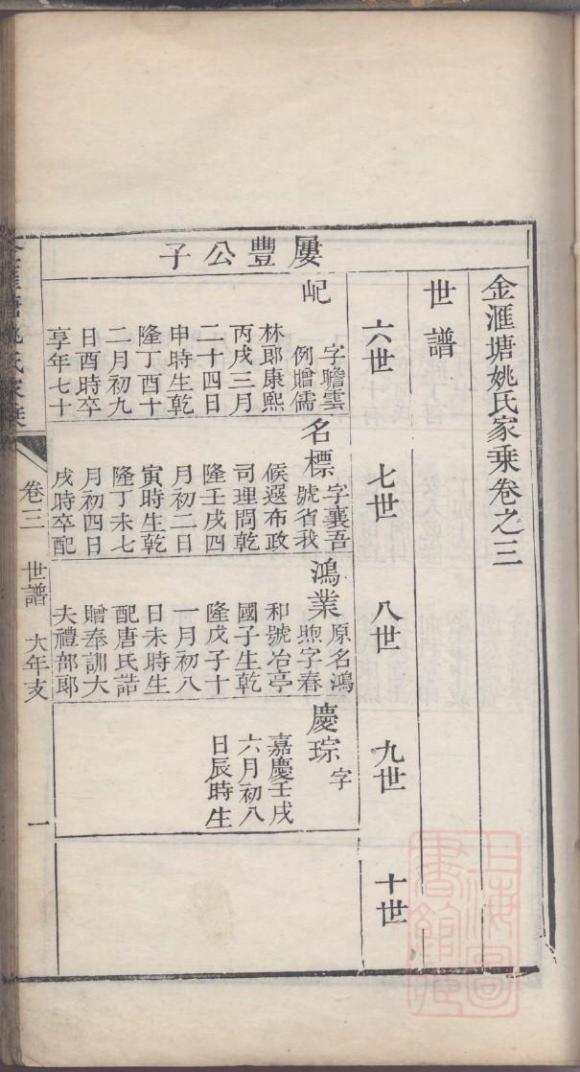 金滙塘姚氏家乗卷之三
世譜
六世
七世
八世
九世
十世
屢豐公子
屺
字瞻雲
例贈儒
林郎康熙
丙戌三月
二十四日
申時生乾
隆丁酉十
二月初九
日酉時卒
享年七十
名標
字襄吾
號省我
候選布政
司理問乾
隆壬戌四
月初二日
寅時生乾
隆丁未七
月初四日
戌時卒配
鴻業
原名鴻
煦字春
和號冶亭
國子生乾
隆戊子十
一月初八
日未時生
配唐氏誥
贈奉訓大
夫禮部郎
慶琮
字
嘉慶壬戌
六月初八
日辰時生
金滙塘姚氏家乗
卷三
世譜
大年支
一
上海圖書館藏